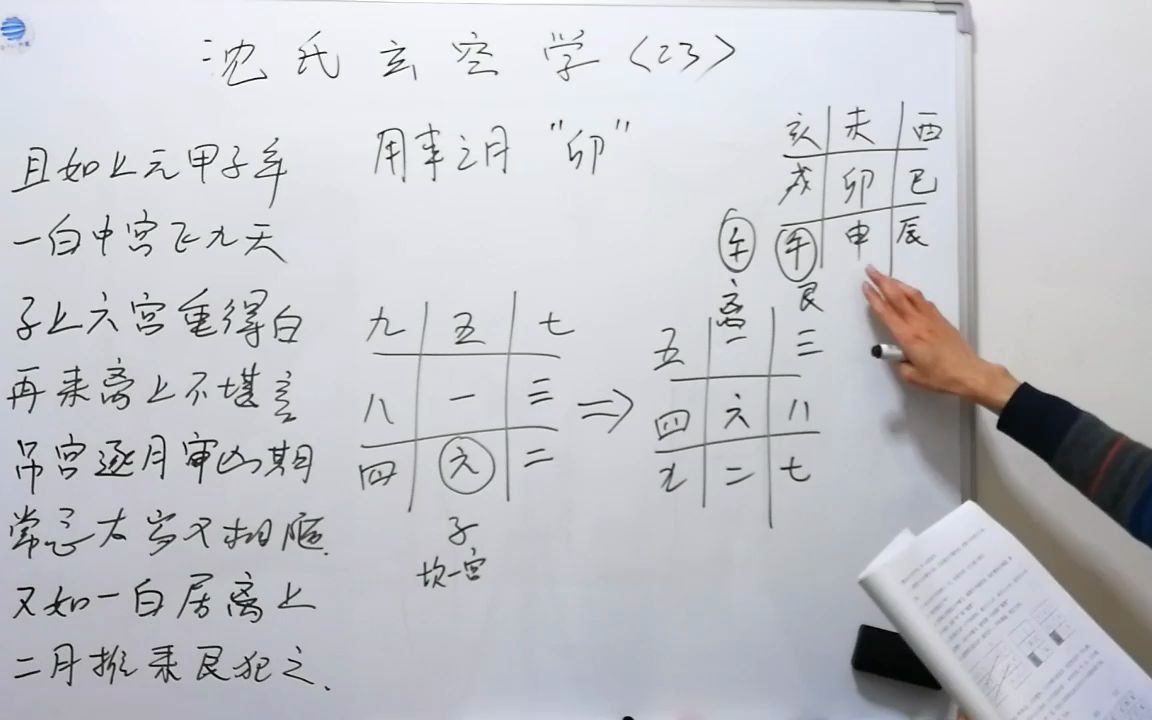 沈氏玄空学<23>
且如上元甲子年
一白中宫飞九天
子上六宫重得白
再来离上不堪言
吊宫逐月审凶期
常忌太岁又相随.
又如一白居离上
二月推来艮犯之.
用事之月 "卯"
亥 未 酉
戌 卯 巳
午 午 申 辰
离 艮
九 五 七
八 一 三
四 六 二
子
坎一宫
=>
五 一 三
四 六 八
九 二 七